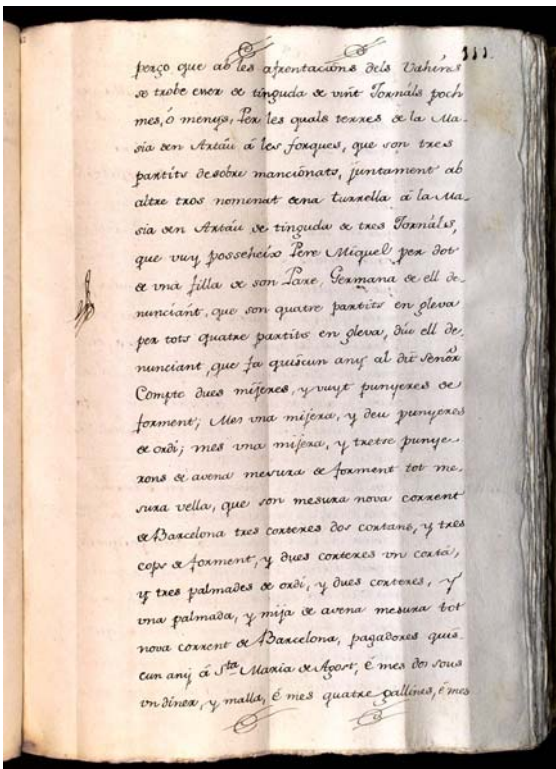 111
perço que ab les afrontacions dels Vahins
se trobe esser de tinguda de vint Jornáls poch
mes, ó menys, Per les quals terres de la Ma-
sia den Artáu á les forques, que son tres
partits desobre mancionats, juntament ab
altre tros nomenat cena turrella á la Ma-
sia den Artáu de tinguda de tres Jornáls,
que vuy posseheix Pere Miquel per dot
de vná filla de son Pare, Germana de ell de-
nunciánt, que son quatre partits en gleva
per tots quatre partits en gleva, diu ell de-
nunciant, que fa quiscun any al dit Señor
Compte dues mijeres, y vuyt punyeres de
forment; Mes vna mijera, y deu punyeres
de ordi; mes vna mijera, y tretse punye-
rons de avena mesura de forment tot me-
sura vella, que son mesura nova corrent
de Barcelona tres corteres dos cortans, y tres
cops de forment, y dues corteres vn cortá,
y tres palmades de ordi, y dues corteres, y
vna palmada, y mija de avena mesura tot
nova corrent de Barcelona, pagadores quis-
cun any á Sta. Maria de Agost, é mes dos sous
vn diner, y malla, é mes quatre gallines, é mes